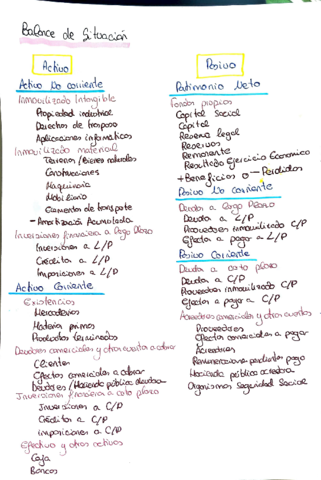 Balance de Situación
Activo
Activo No corriente
Inmovilizado Intangible
Propiedad industrial
Derechos de traspaso
Aplicaciones informaticas
Inmovilizado material
Terrenos / Bienes naturales
Construcciones
Maquinaria
Mobiliario
Elementos de transporte
- Amortización Acumulada
Inversiones financiera a largo plazo
Inversiones a L/P
Créditos a L/P
Imposiciones a L/P
Activo Corriente
Existencias
Mercaderias
Materias primas
Productos terminados
Deudores comerciales y otras cuentas a cobrar
Clientes
Efectos comerciales a cobrar
Deudores / Hacienda pública deudora
Inversiones financiera a corto plazo
Inversiones a C/P
Créditos a C/P
imposiciones a C/P
Efectivo y otros activos
Caja
Bancos
Pasivo
Patrimonio Neto
Fondos propios
Capital Social
Capital
Reserva legal
Reservas
Remanente
Resultado Ejercicio Economico
+ Beneficios o - Perdidas
Pasivo No corriente
Deudas a largo plazo
Deuda a L/P
Proveedores inmovilizado C/P
Efectos a pagar a L/P
Pasivo Corriente
Deuda a corto plazo
Deudas a C/P
Proveedores inmovilizado C/P
Efectos a pagar a C/P
Acreedores comerciales y otras cuentas
Proveedores
Efectos comerciales a pagar
Acreedores
Remuneraciones pendientes pago
Hacienda pública acreedora
Organismos Seguridad Social